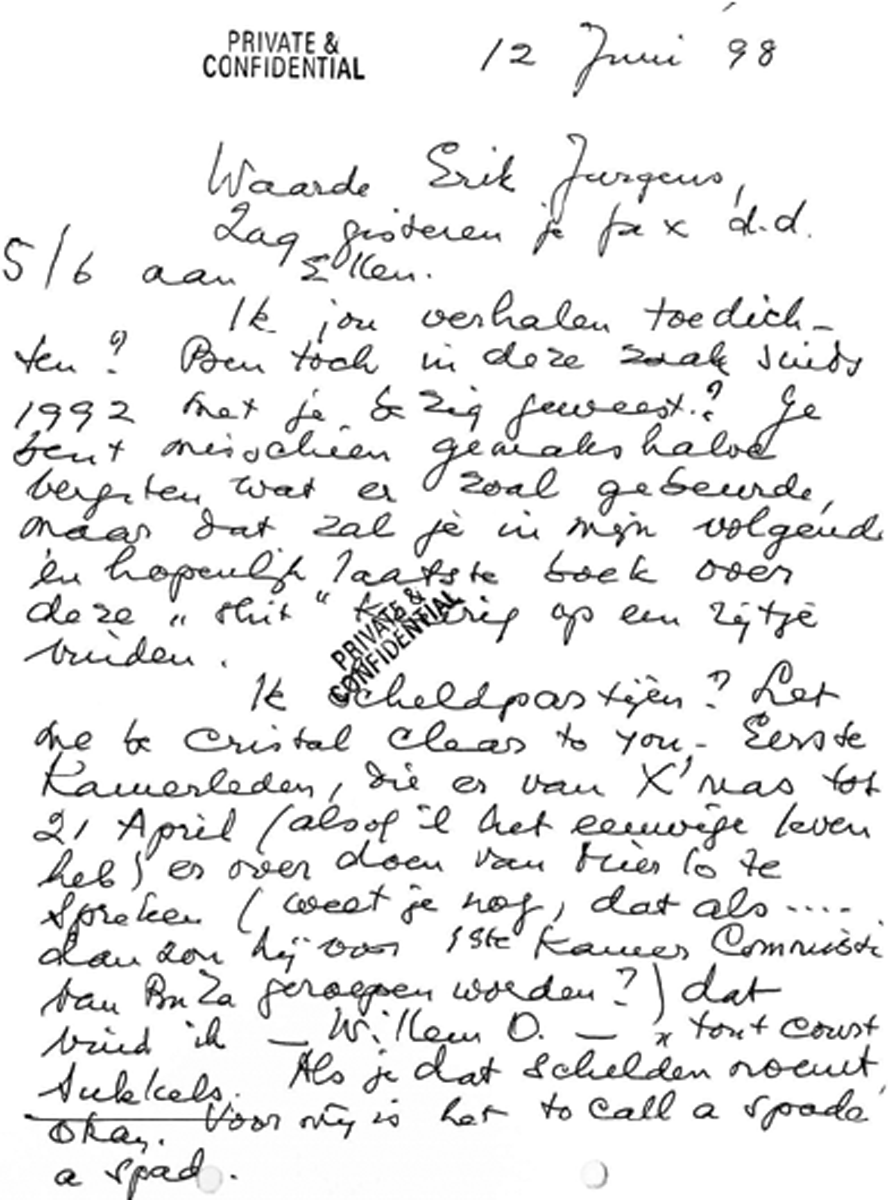 PRIVATE &
CONFIDENTIAL
12 Juni '98
Waarde Erik Jurgens,
Zag gisteren je fax d.d.
5/6 aan Ellen.
Ik jou verhalen toedich-
ten? Ben toch in deze zaak sinds
1992 met je bezig geweest? Je
bent misschien gemakshalve
vergeten wat er zoal gebeurde,
maar dat zal je in mijn volgende
èn hopenlijk laatste boek over
deze "shit" keurig op een rijtje
vinden.
PRIVATE &
CONFIDENTIAL
Ik scheldpartijen? Let
me be cristal clear to you - Eerste
Kamerleden, die er van X'mas tot
21 April (alsof ik het eeuwige leven
heb) er over doen van Mierlo te
spreken (weet je nog, dat als ....
dan zou hij voor 1ste Kamer Commissie
van BuZa geroepen worden?) dat
vind ik — Willem O. — tout court
sukkels. Als je dat schelden noemt,
okay. Voor mij is het to call a spade
a spade.